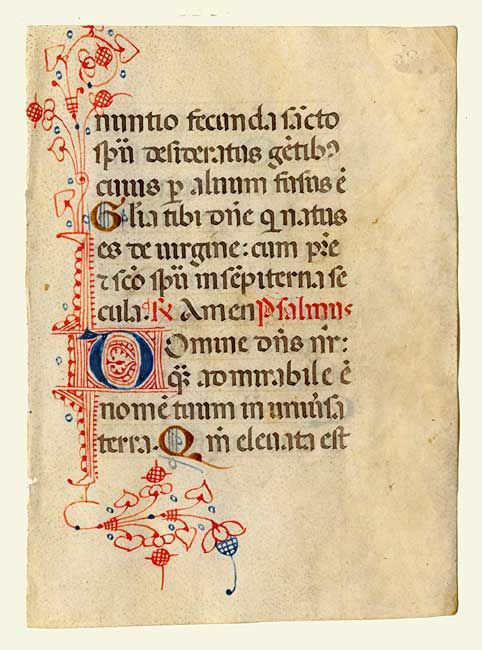 nuntio fecunda sa̅cto
sp̅u desideratus ge̅tibꝰ
cuius p̲ aluum fusus e̅
Glia tibi dn̅e q natus
es de uirgine: cum pr̅e
⁊ sc̅o sp̅u in se̅piterna se
cula. ℟ Amen Psalmus
Domine dn̅s nr̅:
q̅ᷓ admirabile e̅
nome̅ tuum in uniu̕sa
terra. Qm̅ eleuata est